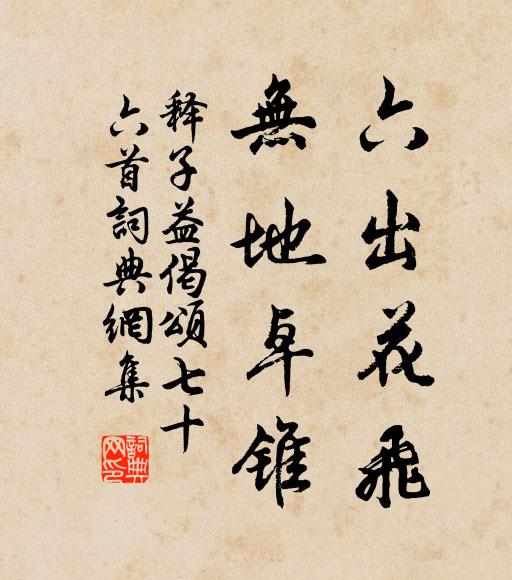 六出花飛
無地卓錐
释子益偈頌七十
六首詞典網集
詞典网印